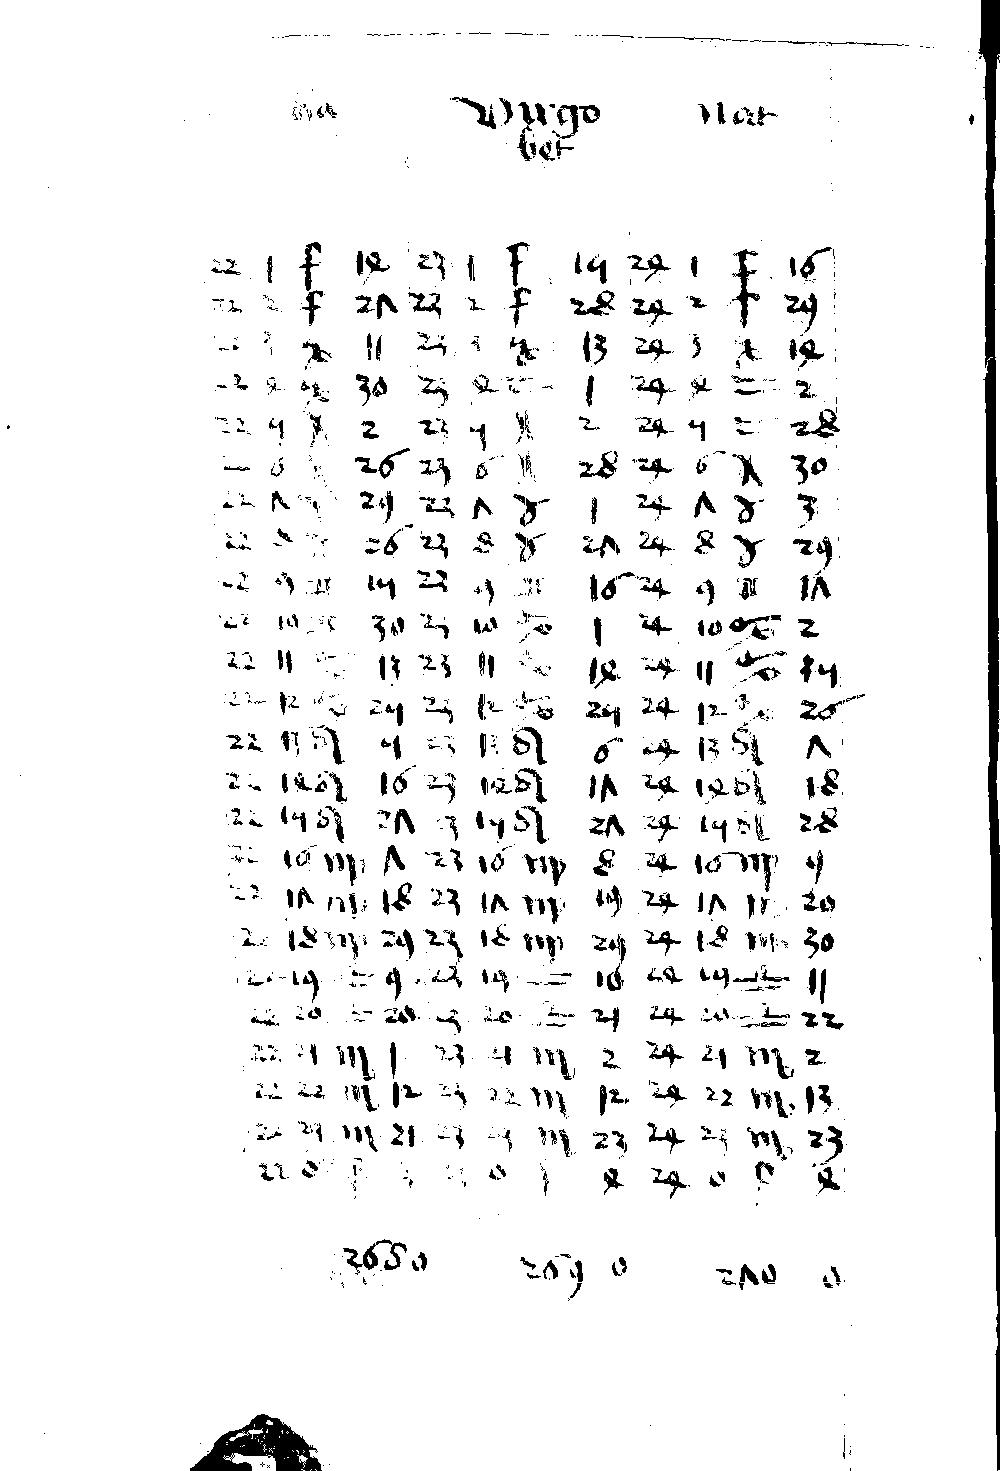 Virgo Nat
bet
22 1 ♐ 14 23 1 ♐ 15 24 1 ♐ 16
22 2 ♐ 27 23 2 ♐ 28 24 2 ♐ 29
22 3 ♑ 11 23 3 ♑ 13 24 3 ♑ 14
22 4 ♑ 30 23 4 ♒ 1 24 4 ♒ 2
22 5 ♓ 2 23 5 ♓ 2 24 5 ♒ 28
22 6 ♓ 26 23 6 ♓ 28 24 6 ♓ 30
22 7 ♈ 29 23 7 ♉ 1 24 7 ♉ 3
22 8 ♉ 26 23 8 ♉ 27 24 8 ♉ 29
22 9 ♊ 15 23 9 ♊ 16 24 9 ♊ 17
22 10 ♊ 30 23 10 ♋ 1 24 10 ♋ 2
22 11 ♋ 13 23 11 ♋ 14 24 11 ♋ 15
22 12 ♋ 25 23 12 ♋ 25 24 12 ♋ 26
22 13 ♌ 5 23 13 ♌ 6 24 13 ♌ 7
22 14 ♌ 16 23 14 ♌ 17 24 14 ♌ 18
22 15 ♌ 27 23 15 ♌ 27 24 15 ♌ 28
22 16 ♍ 7 23 16 ♍ 8 24 16 ♍ 9
22 17 ♍ 18 23 17 ♍ 19 24 17 ♍ 20
22 18 ♍ 29 23 18 ♍ 29 24 18 ♍ 30
22 19 ♎ 9 23 19 ♎ 10 24 19 ♎ 11
22 20 ♎ 20 23 20 ♎ 21 24 20 ♎ 22
22 21 ♏ 1 23 21 ♏ 2 24 21 ♏ 2
22 22 ♏ 12 23 22 ♏ 12 24 22 ♏ 13
22 23 ♏ 21 23 23 ♏ 23 24 23 ♏ 23
22 0 ♐ 3 23 0 ♐ 4 24 0 ♐ 4
268 0 269 0 270 0